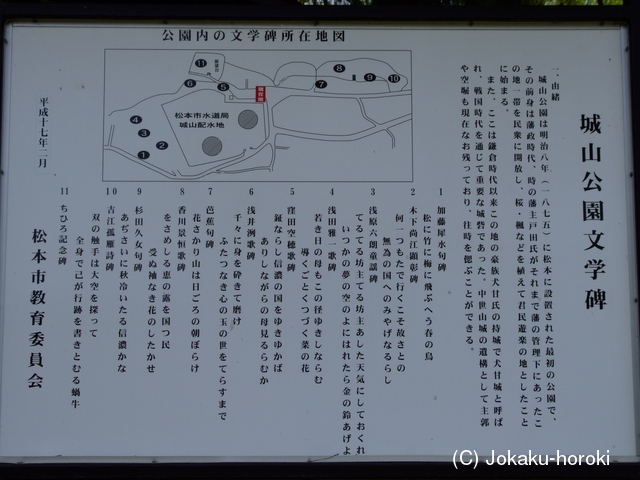 城山公園文学碑
一、由緒
城山公園は明治八年(一八七五)に松本に設置された最初の公園で、
その前身は藩政時代、時の藩主戸田氏がそれまで藩の管理下にあったこ
の地一帯を民衆に開放し、桜・楓などを植えて君民遊楽の地としたこと
に始まる。
また、ここは鎌倉時代以来この地の豪族犬甘氏の持城で犬甘城と呼ば
れ、戦国時代を通じて重要な城砦であった。中世山城の遺構として主郭
や空堀も現在なお残っており、往時を偲ぶことができる。
公園内の文学碑所在地図
11
展望台
現在地
6
5
8
9
10
7
4
3
2
1
松本市水道局
城山配水地
1 加藤犀水句碑
松に竹に梅に飛ぶへう春の鳥
2 木下尚江顕彰碑
何一つもたで行くこそ故さとの
無為の国へのみやげなるらし
3 浅原六朗童謡碑
てるてる坊主てる坊主あした天気にしておくれ
いつかの夢の空のよにはれたら金の鈴あげよ
4 浅田雅一歌碑
若き日の母もこの径ゆきしならむ
導くごとくつづく菜の花
5 窪田空穂歌碑
鉦ならし信濃の国をゆきゆかば
ありしながらの母見るらむか
6 浅井洌歌碑
千々に心を砕きて磨け
ふたつなき心の玉の世をてらすまで
7 芭蕉句碑
花さかり山は日ごろの朝ぼらけ
8 香川景恒歌碑
をさめしる恵の露を国つ民
受ぬ袖なき花のしたかせ
9 杉田久女句碑
あぢさいに秋冷いたる信濃かな
10 吉江孤雁詩碑
双の触手は大空を探って
全身で己が行跡を書きとむる蝸牛
11 ちひろ記念碑
平成十七年二月
松本市教育委員会
(C) Jokaku-horoki